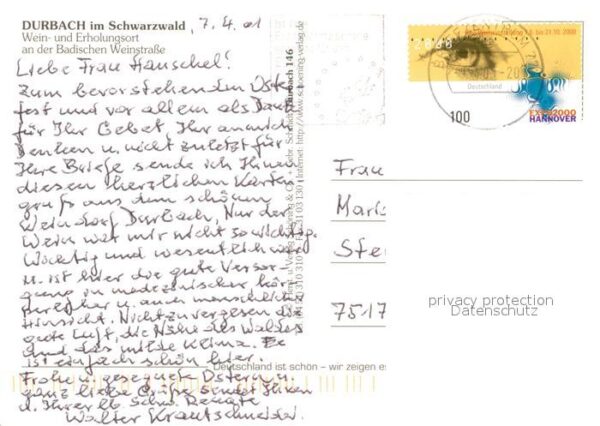 DURBACH im Schwarzwald, 7.4.01
Wein- und Erholungsort
an der Badischen Weinstraße
Liebe Frau Hauschel!
Zum bevorstehenden Oster-
fest und vor allem als Dank
für Ihr Gebet, Ihr an mich
denken u. nicht zuletzt für
Ihre Briefe sende ich Ihnen
diesen herzlichen Karten-
gruß aus dem schönen
Weindorf Durbach, Nur der
Wein war mir nicht so wichtig.
Wichtig und wesentlich war
u. ist hier die gute Versor-
gung in medizinischer, kör-
perlicher u. auch menschlicher
Hinsicht. Nicht zu vergessen die
gute Luft, die Nähe des Waldes
und das milde Klima. Es
ist einfach schön hier.
Frohe, gesegnete Ostern
ganz liebe Grüße sendet Ihnen
u. Ihrer lb. Schw. Renate
Walter Krautschneider.
Durbach 146
Internet: http://www.schoening-verlag.de
Deutschland ist schön – wir zeigen es
2000
21.10.2000
Deutschland
100
EXPO2000
HANNOVER
Frau
Maria
Ste
7517
privacy protection
Datenschutz